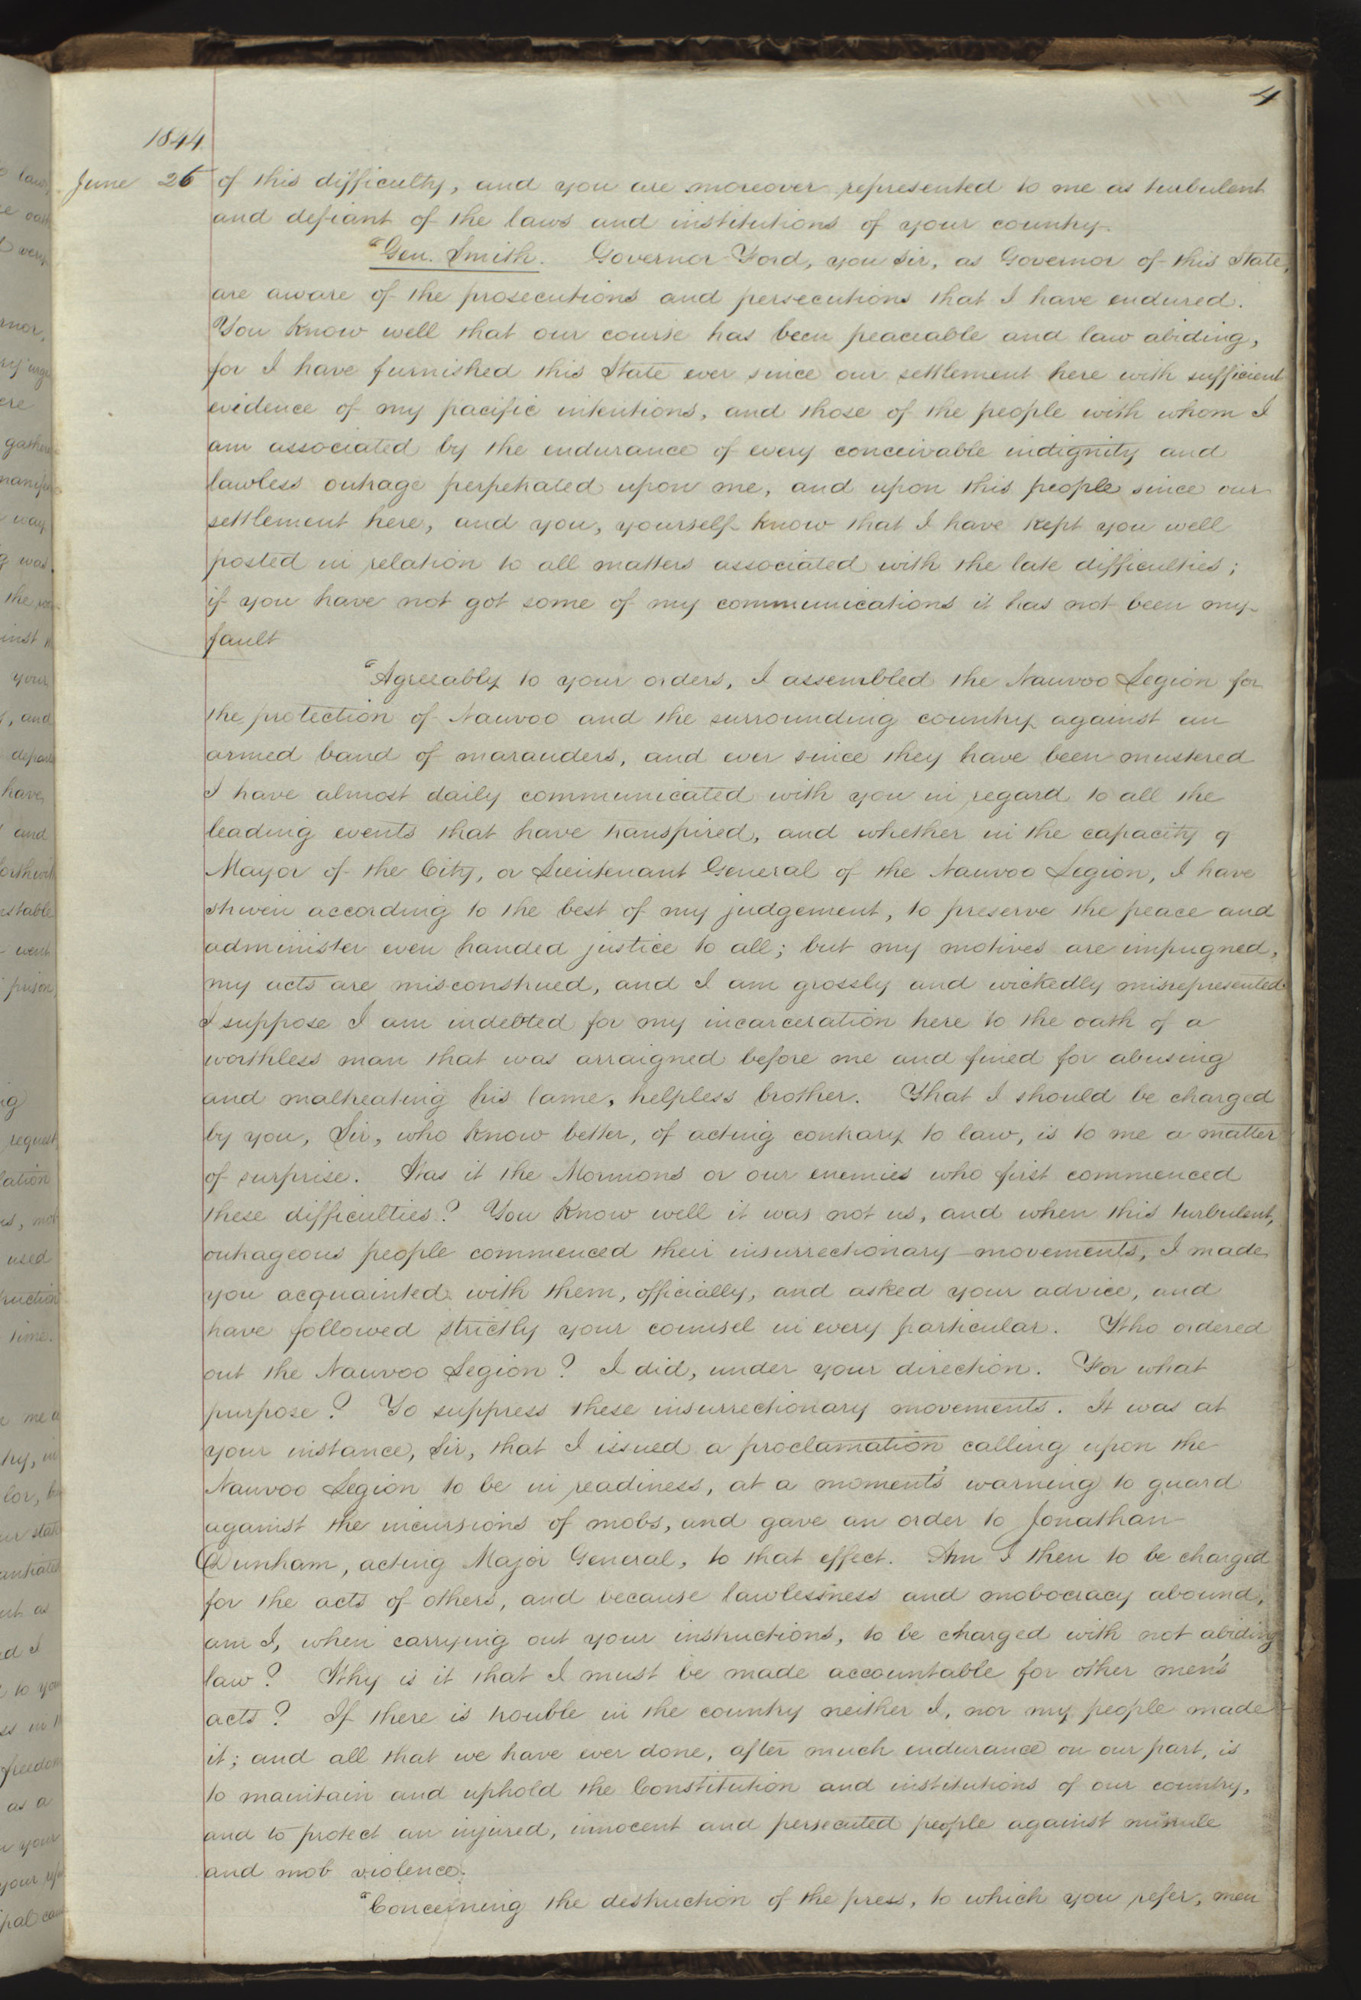 4
1844.
June 26 of this difficulty, and you are moreover represented to me as turbulent
and defiant of the laws and institutions of your country.
"Gen. Smith. Governor Ford, you Sir, as Governor of this State,
are aware of the prosecutions and persecutions that I have endured.
You know well that our course has been peaceable and law abiding,
for I have furnished this State ever since our settlement here with sufficient
evidence of my pacific intentions, and those of the people with whom I
am associated by the endurance of every conceivable indignity and
lawless outrage perpetrated upon me, and upon this people since our
settlement here, and you, yourself know that I have kept you well
posted in relation to all matters associated with the late difficulties;
if you have not got some of my communications it has not been my
fault
"Agreeably to your orders, I assembled the Nauvoo Legion for
the protection of Nauvoo and the surrounding country against an
armed band of marauders, and ever since they have been mustered
I have almost daily communicated with you in regard to all the
leading events that have transpired, and whether in the capacity of
Mayor of the City, or Lieutenant General of the Nauvoo Legion, I have
striven according to the best of my judgement, to preserve the peace and
administer even handed justice to all; but my motives are impugned,
my acts are misconstrued, and I am grossly and wickedly misrepresented.
I suppose I am indebted for my incarceration here to the oath of a
worthless man that was arraigned before me and fined for abusing
and maltreating his lame, helpless brother. That I should be charged
by you, Sir, who know better, of acting contrary to law, is to me a matter
of surprise. Was it the Mormons or our enemies who first commenced
these difficulties? You know well it was not us, and when this turbulent,
outrageous people commenced their insurrectionary movements, I made
you acquainted with them, officially, and asked your advice, and
have followed strictly your counsel in every particular. Who ordered
out the Nauvoo Legion? I did, under your direction. For what
purpose? To suppress these insurrectionary movements. It was at
your instance, Sir, that I issued a proclamation calling upon the
Nauvoo Legion to be in readiness, at a moment's warning to guard
against the incursions of mobs, and gave an order to Jonathan
Dunham, acting Major General, to that effect. Am I then to be charged
for the acts of others, and because lawlessness and mobocracy abound,
am I, when carrying out your instructions, to be charged with not abiding
law? Why is it that I must be made accountable for other men's
acts? If there is trouble in the country neither I, nor my people made
it; and all that we have ever done, after much endurance on our part, is
to maintain and uphold the Constitution and institutions of our country,
and to protect an injured, innocent and persecuted people against misrule
and mob violence.
"Concerning the destruction of the press, to which you refer, men